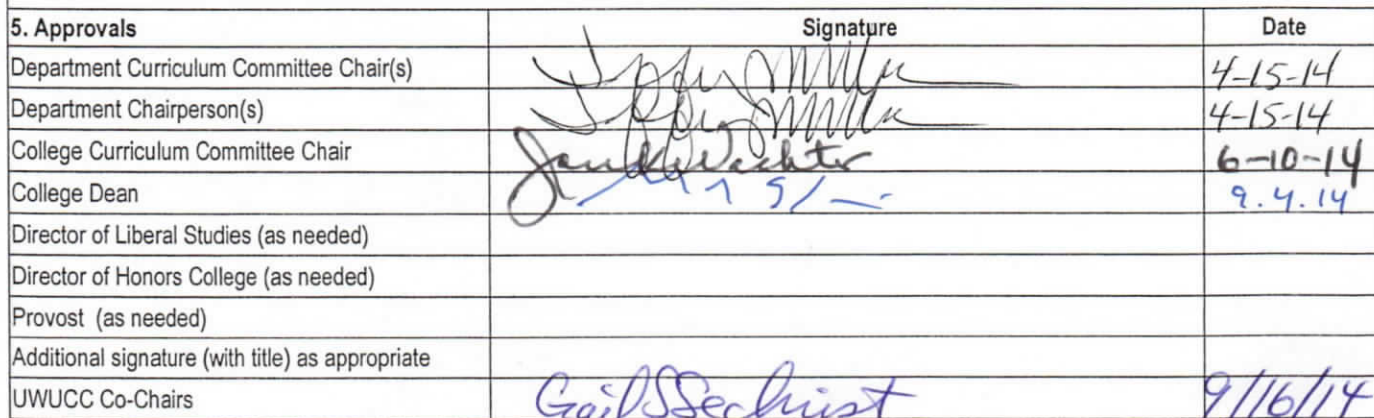 5. Approvals Signature Date
Department Curriculum Committee Chair(s) 4-15-14
Department Chairperson(s) 4-15-14
College Curriculum Committee Chair Wachter 6-10-14
College Dean 9.4.14
Director of Liberal Studies (as needed)
Director of Honors College (as needed)
Provost (as needed)
Additional signature (with title) as appropriate
UWUCC Co-Chairs Gail S Sechrist 9/16/14